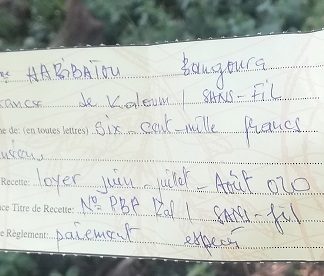 me HABIBATOU Bangoura
francs de Kaloum / SANS-FIL
ne de: (en toutes lettres) Six-cent-mille francs
Recette: loyer juin-juillet-Août 020
ce Titre de Recette: N° PBP Kal / SANS-fil
e Règlement: paiement espèce